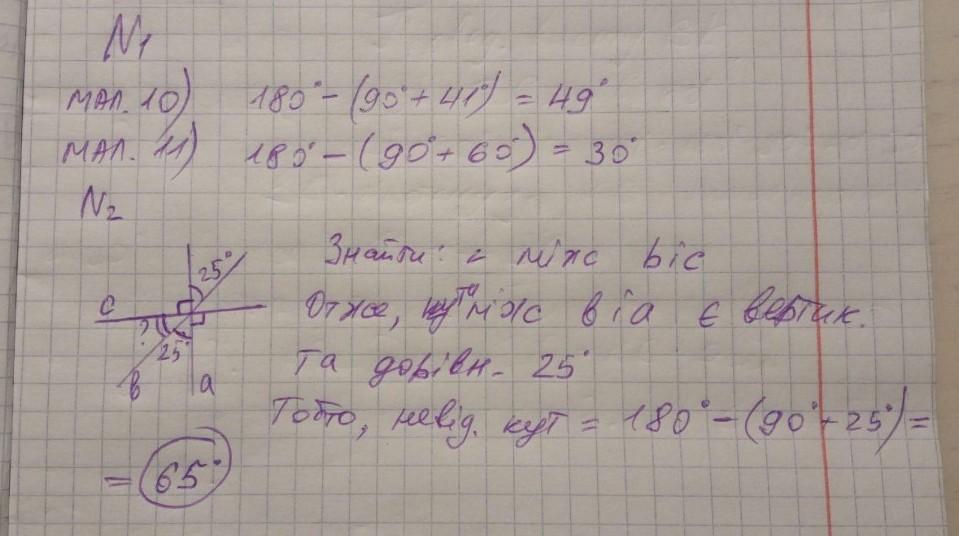 N1
мал. 10) 180° - (90° + 41°) = 49°
мал. 11) 180° - (90° + 60°) = 30°
N2
25°
c
?
25°
в
a
Знайти: ∠ між bіc
Отже, кути між в і а є вертик.
Та дорівн. 25°
Тобто, невід. кут = 180° - (90° + 25°) =
= 65°